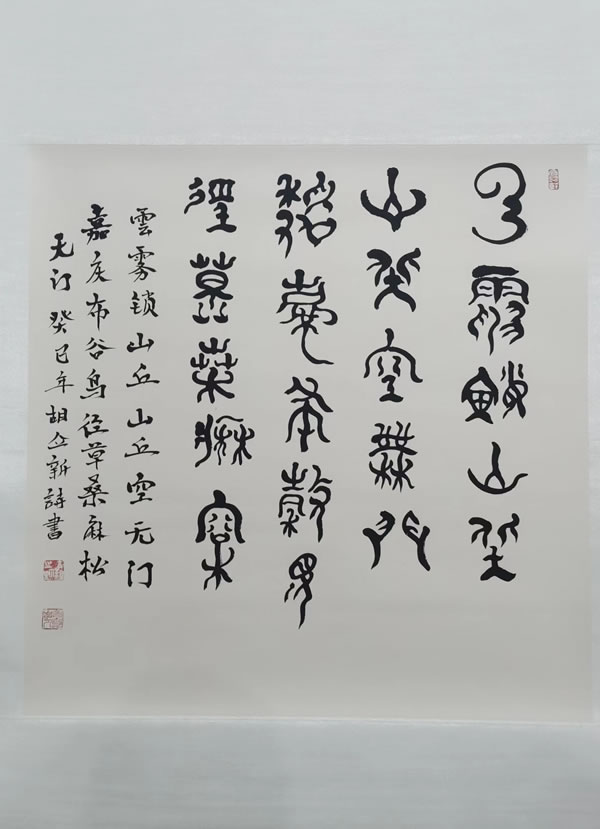 云霧鎖山丘
山丘空無門
嘉慶布穀鳥
徑草桑麻松
雲雾锁山丘山丘空无门
嘉庆布谷鸟径草桑麻松
无门癸巳年胡立新詩書